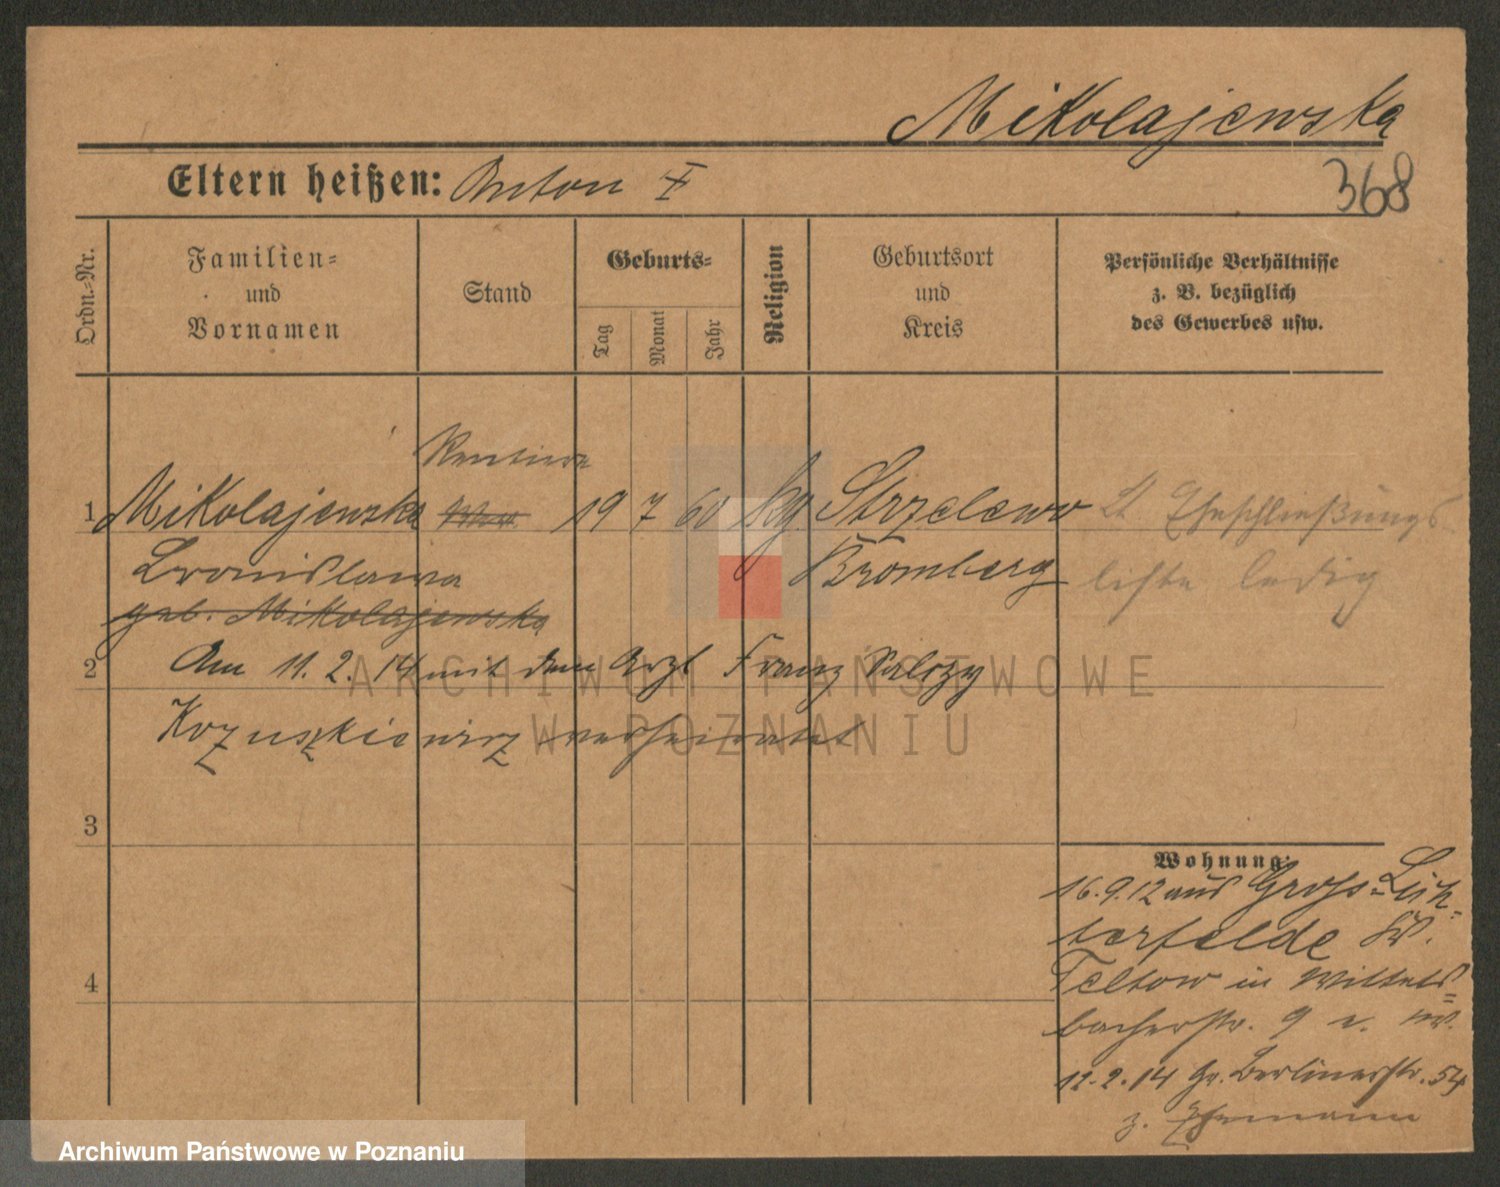 Mikolajewska
368
Eltern heißen: Anton I
Ordn.-Nr.
Familien-
und
Vornamen
Stand
Geburts-
Tag
Monat
Jahr
Religion
Geburtsort
und
Kreis
Persönliche Verhältnisse
z. B. bezüglich
des Gewerbes usw.
Rentiere
1 Mikolajewska 19 7 60 Strzelewo Lt Eheschließungs
Bronislawa Bromberg liste ledig
geb. Mikolajewska
2 Am 11. 2. 14 mit dem Arzt Franz
verheiratet
3
4
Wohnung:
16.9.12 aus Gross-Lich-
terfelde Kr.
Teltow in Wittels-
bacherstr. 9
12.2.14 Gr. Berlinerstr. 54
z. Ehemann
ARCHIWUM PAŃSTWOWE
W POZNANIU
Archiwum Państwowe w Poznaniu